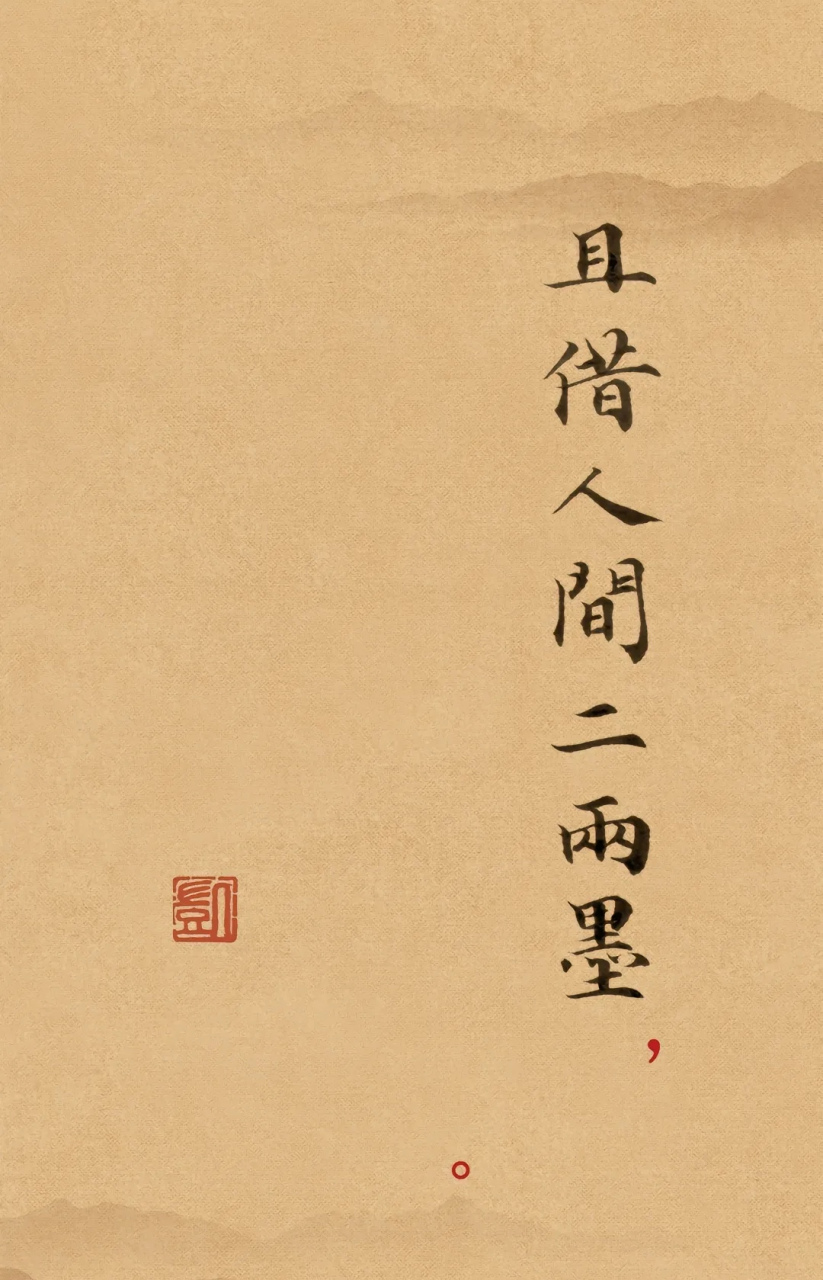 且借人間二兩墨，
。